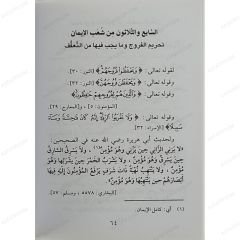 السابع والثلاثون من شعب الإيمان
تحريم الفروج وما يجب فيها من التعفف
لقوله تعالى: ﴿ وَيَحْفَظُوا فُرُوجَهُمْ ﴾ [النور: ٣٠]
وقوله تعالى: ﴿ وَيَحْفَظْنَ فُرُوجَهُنَّ ﴾ [النور: ٣١]
وقوله تعالى: ﴿ وَالَّذِينَ هُمْ لِفُرُوجِهِمْ حَافِظُونَ ﴾
[المؤمنون: ٥]، و[المعارج: ٢٩]
وقوله تعالى: ﴿ وَلَا تَقْرَبُوا الزِّنَا إِنَّهُ كَانَ فَاحِشَةً وَسَاءَ
سَبِيلًا ﴾ [الإسراء: ٣٢]
ولحديث أبي هريرة رضي الله عنه في الصحيحين:
«لا يزني الزاني حين يزني وهو مؤمن(١)، ولا يسرق السارق
حين يسرق وهو مؤمن، ولا يشرب الخمر حين يشربها وهو
مؤمن، ولا ينتهب نهبة ذات شرف يرفع المسلمون إليه فيها
أبصارهم حين ينتهبها وهو مؤمن».
[البخاري: ٥٥٧٨، ومسلم: ٥٧]
(١) أي: كامل الإيمان.
٦٤